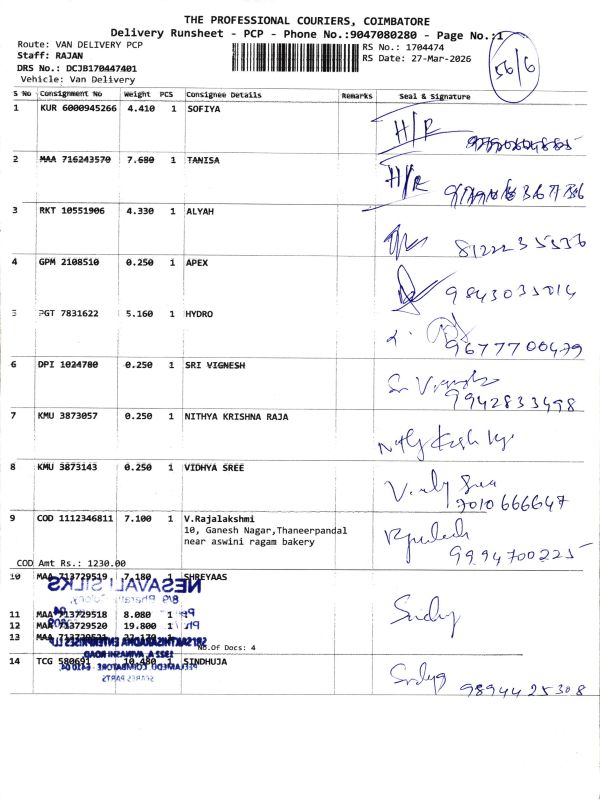 THE PROFESSIONAL COURIERS, COIMBATORE
Delivery Runsheet - PCP - Phone No.:9047080280 - Page No.:1
Route: VAN DELIVERY PCP
RS No.: 1704474
56/6
Staff: RAJAN
RS Date: 27-Mar-2026
DRS No.: DCJB170447401
Vehicle: Van Delivery
S No Consignment No Weight PCS Consignee Details Remarks Seal & Signature
1 KUR 6000945266 4.410 1 SOFIYA
H/R
2 MAA 716243570 7.680 1 TANISA
H/R
3 RKT 10551906 4.330 1 ALYAH
4 GPM 2108510 0.250 1 APEX
5 PGT 7831622 5.160 1 HYDRO
9677700479
6 DPI 1024780 0.250 1 SRI VIGNESH
9942833498
7 KMU 3873057 0.250 1 NITHYA KRISHNA RAJA
8 KMU 3873143 0.250 1 VIDHYA SREE
7010666647
9 COD 1112346811 7.100 1 V.Rajalakshmi
10, Ganesh Nagar,Thaneerpandal
near aswini ragam bakery
9994700225
COD Amt Rs.: 1230.00
10 MAA 713729519 7.180 1 SHREYAAS
NESAVALI SILKS
11 MAA 713729518 8.080 1
12 MAA 713729520 19.800 1
13 MAA
No.Of Docs: 4
14 TCG 580691 10.480 1 SINDHUJA
9894425308